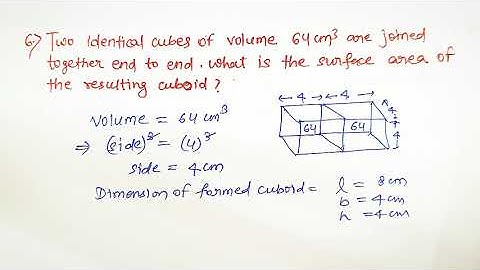 6.) Two identical cubes of volume 64 cm³ are joined
together end to end. what is the surface area of
the resulting cuboid?
volume = 64 cm³
⇒ (side)³ = (4)³
side = 4 cm
Dimension of formed cuboid = l = 8 cm
b = 4 cm
h = 4 cm
4 4
4
4
64 64